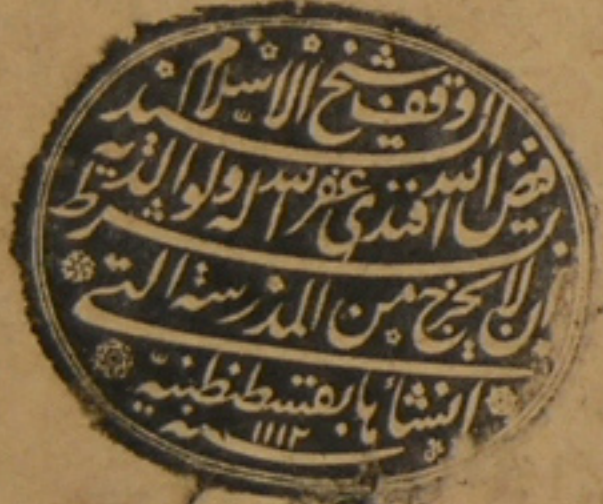 وقف شيخ الاسلام السيد
فيض الله افندى غفر الله له ولوالديه
بشرط
ان لا يخرج من المدرسة التى
انشأها بقسطنطنية
سنة ١١١٢